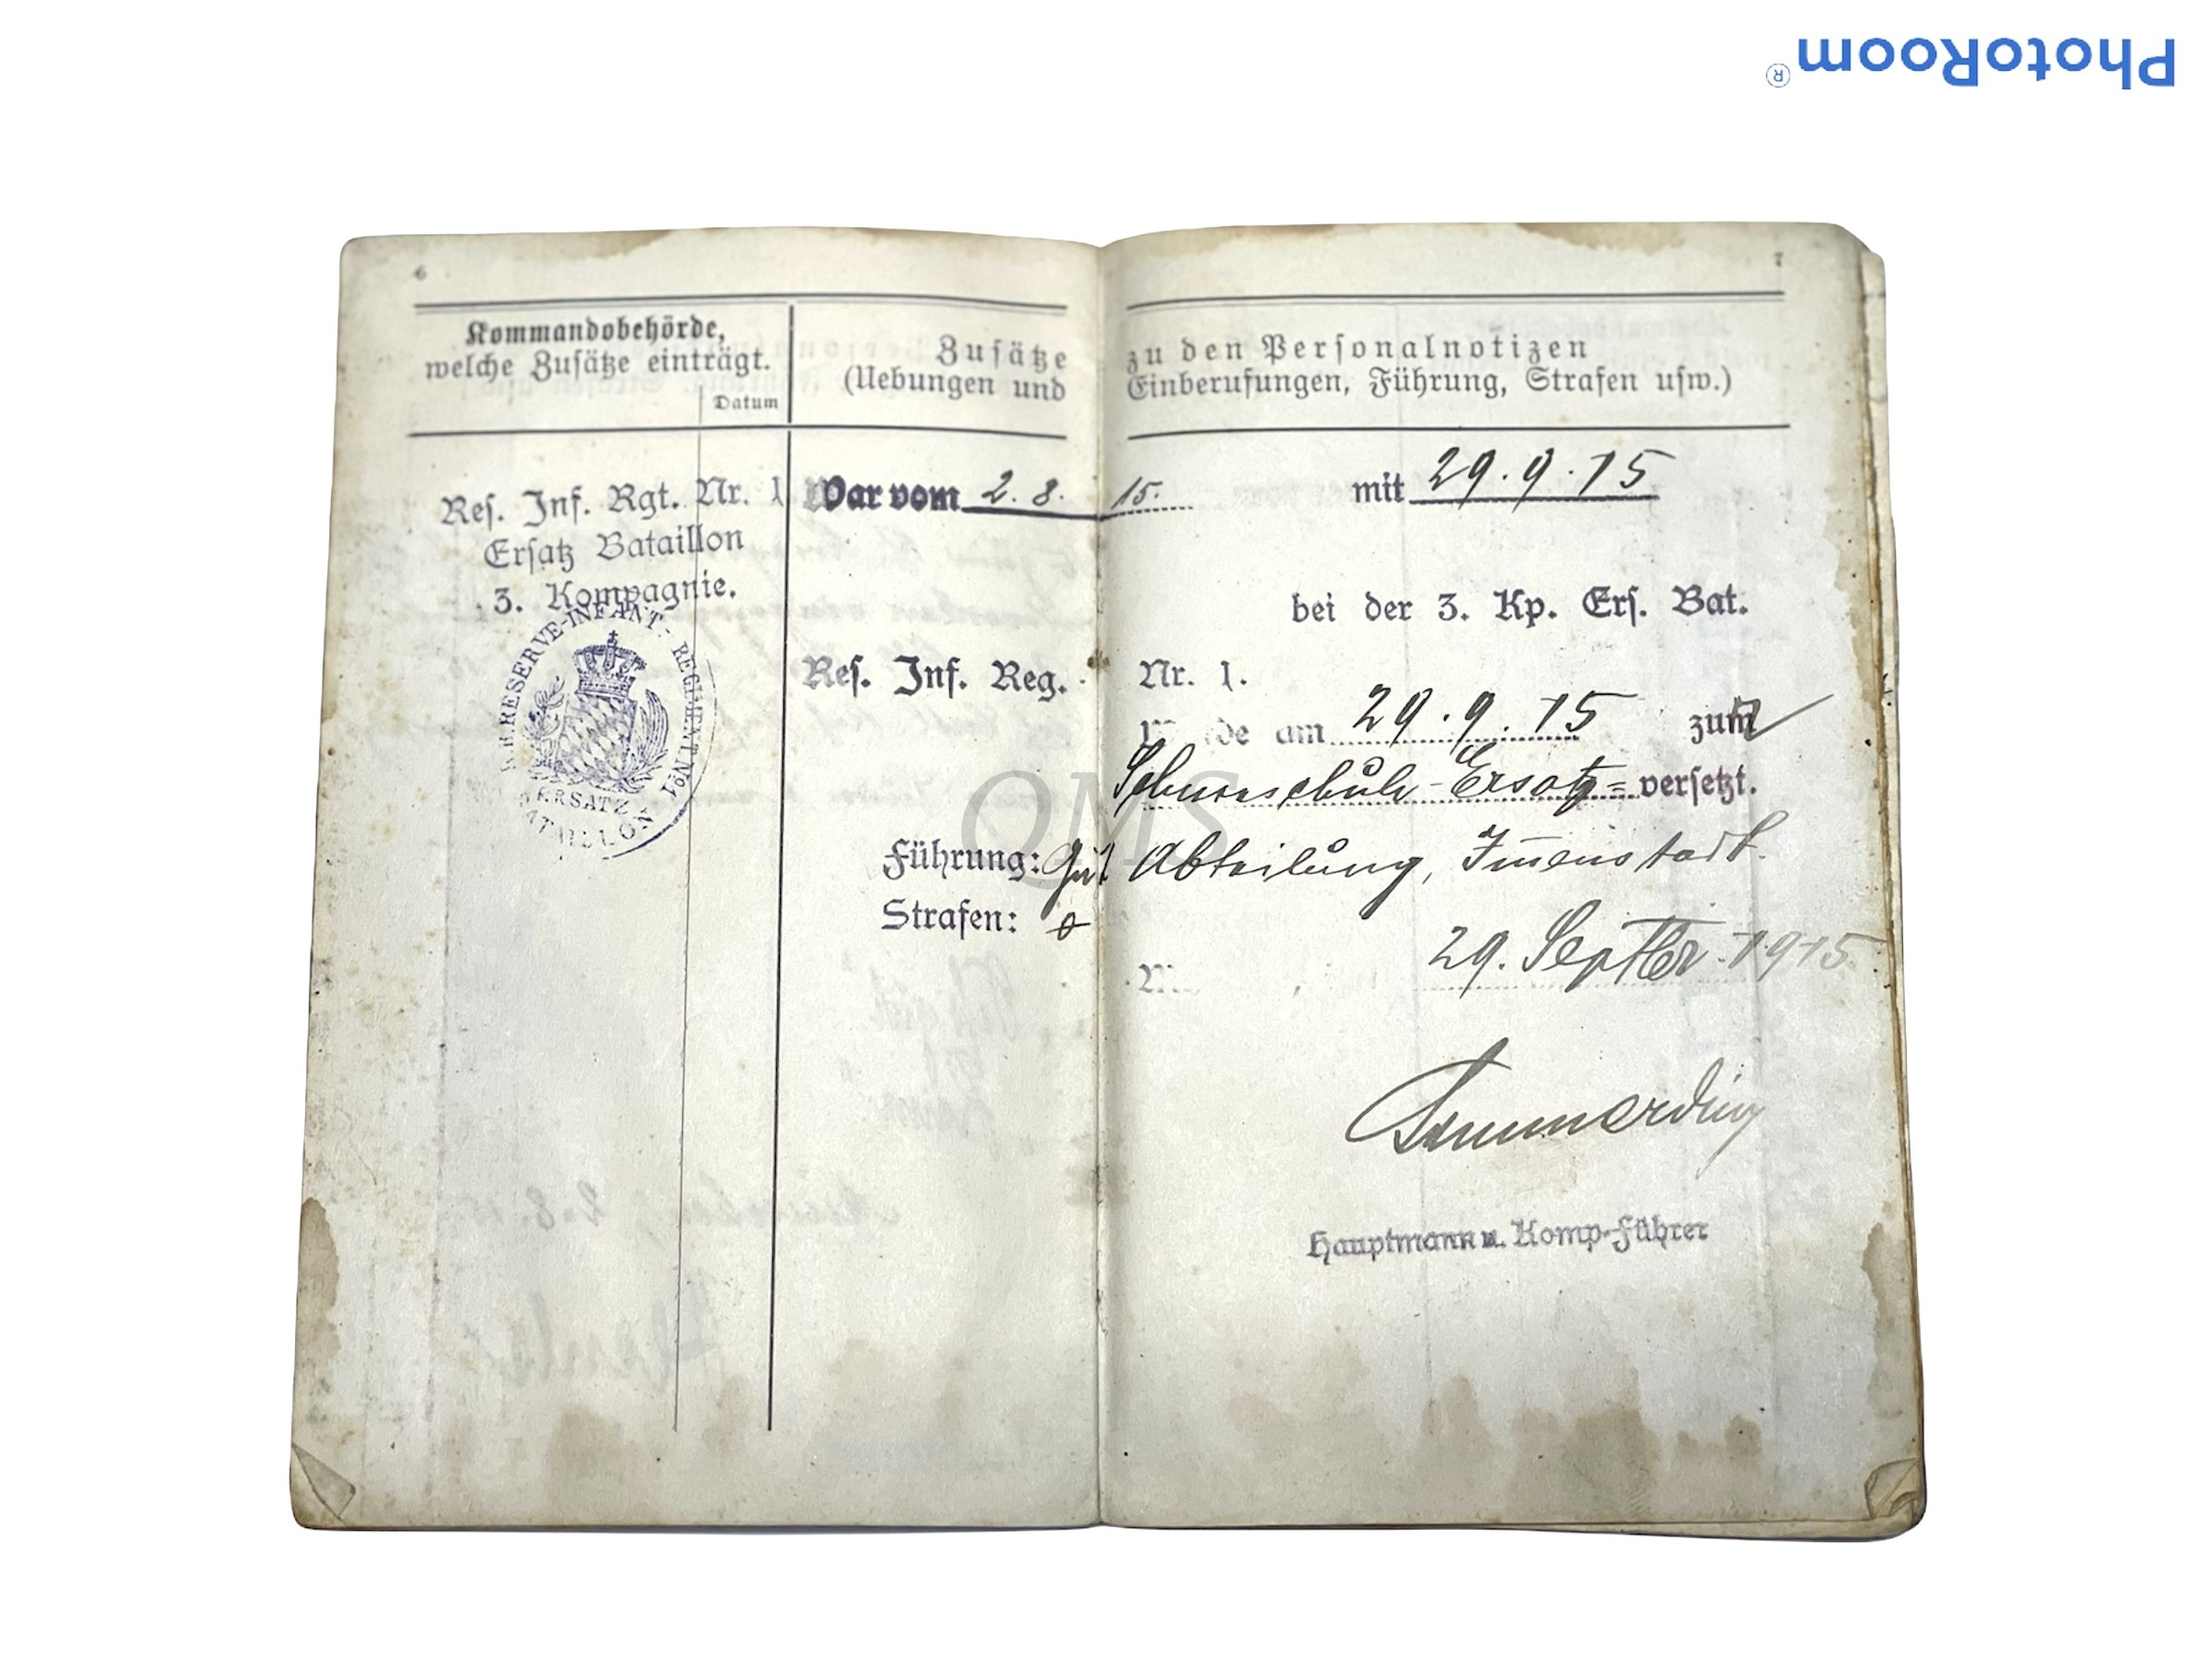 PhotoRoom®
6
7
Kommandobehörde,
welche Zusätze einträgt.
Datum
Zusätze zu den Personalnotizen
(Uebungen und Einberufungen, Führung, Strafen usw.)
Res. Inf. Rgt. Nr. 1
Ersatz Bataillon
3. Kompagnie.
RESERVE-INFANT. REGIMENT No1
ERSATZ
BATAILLON
War vom 2. 8. 15. mit 29.9.15
bei der 3. Kp. Ers. Bat.
Res. Inf. Reg. Nr. 1.
am 29.9.15 zur
Schneeschuh-Ersatz= versetzt.
Führung: Gut Abteilung, Im̄enstadt.
Strafen: 0
29. Septbr. 1915.
QMS
Hauptmann u. Komp-Führer